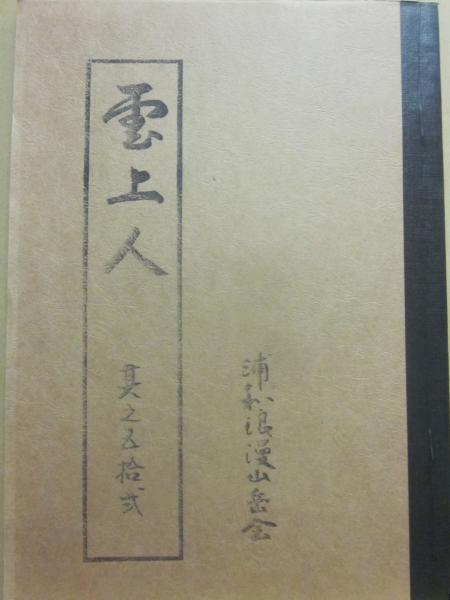 浦和浪漫山岳会
雲上人
其之五拾弐